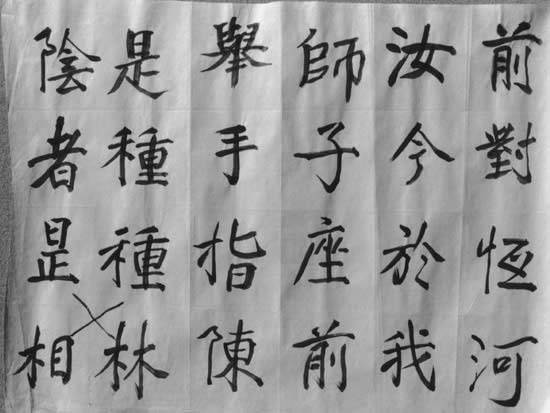 前對恆河
汝今於我
師子座前
舉手指陳
是種種林
陰者昰相